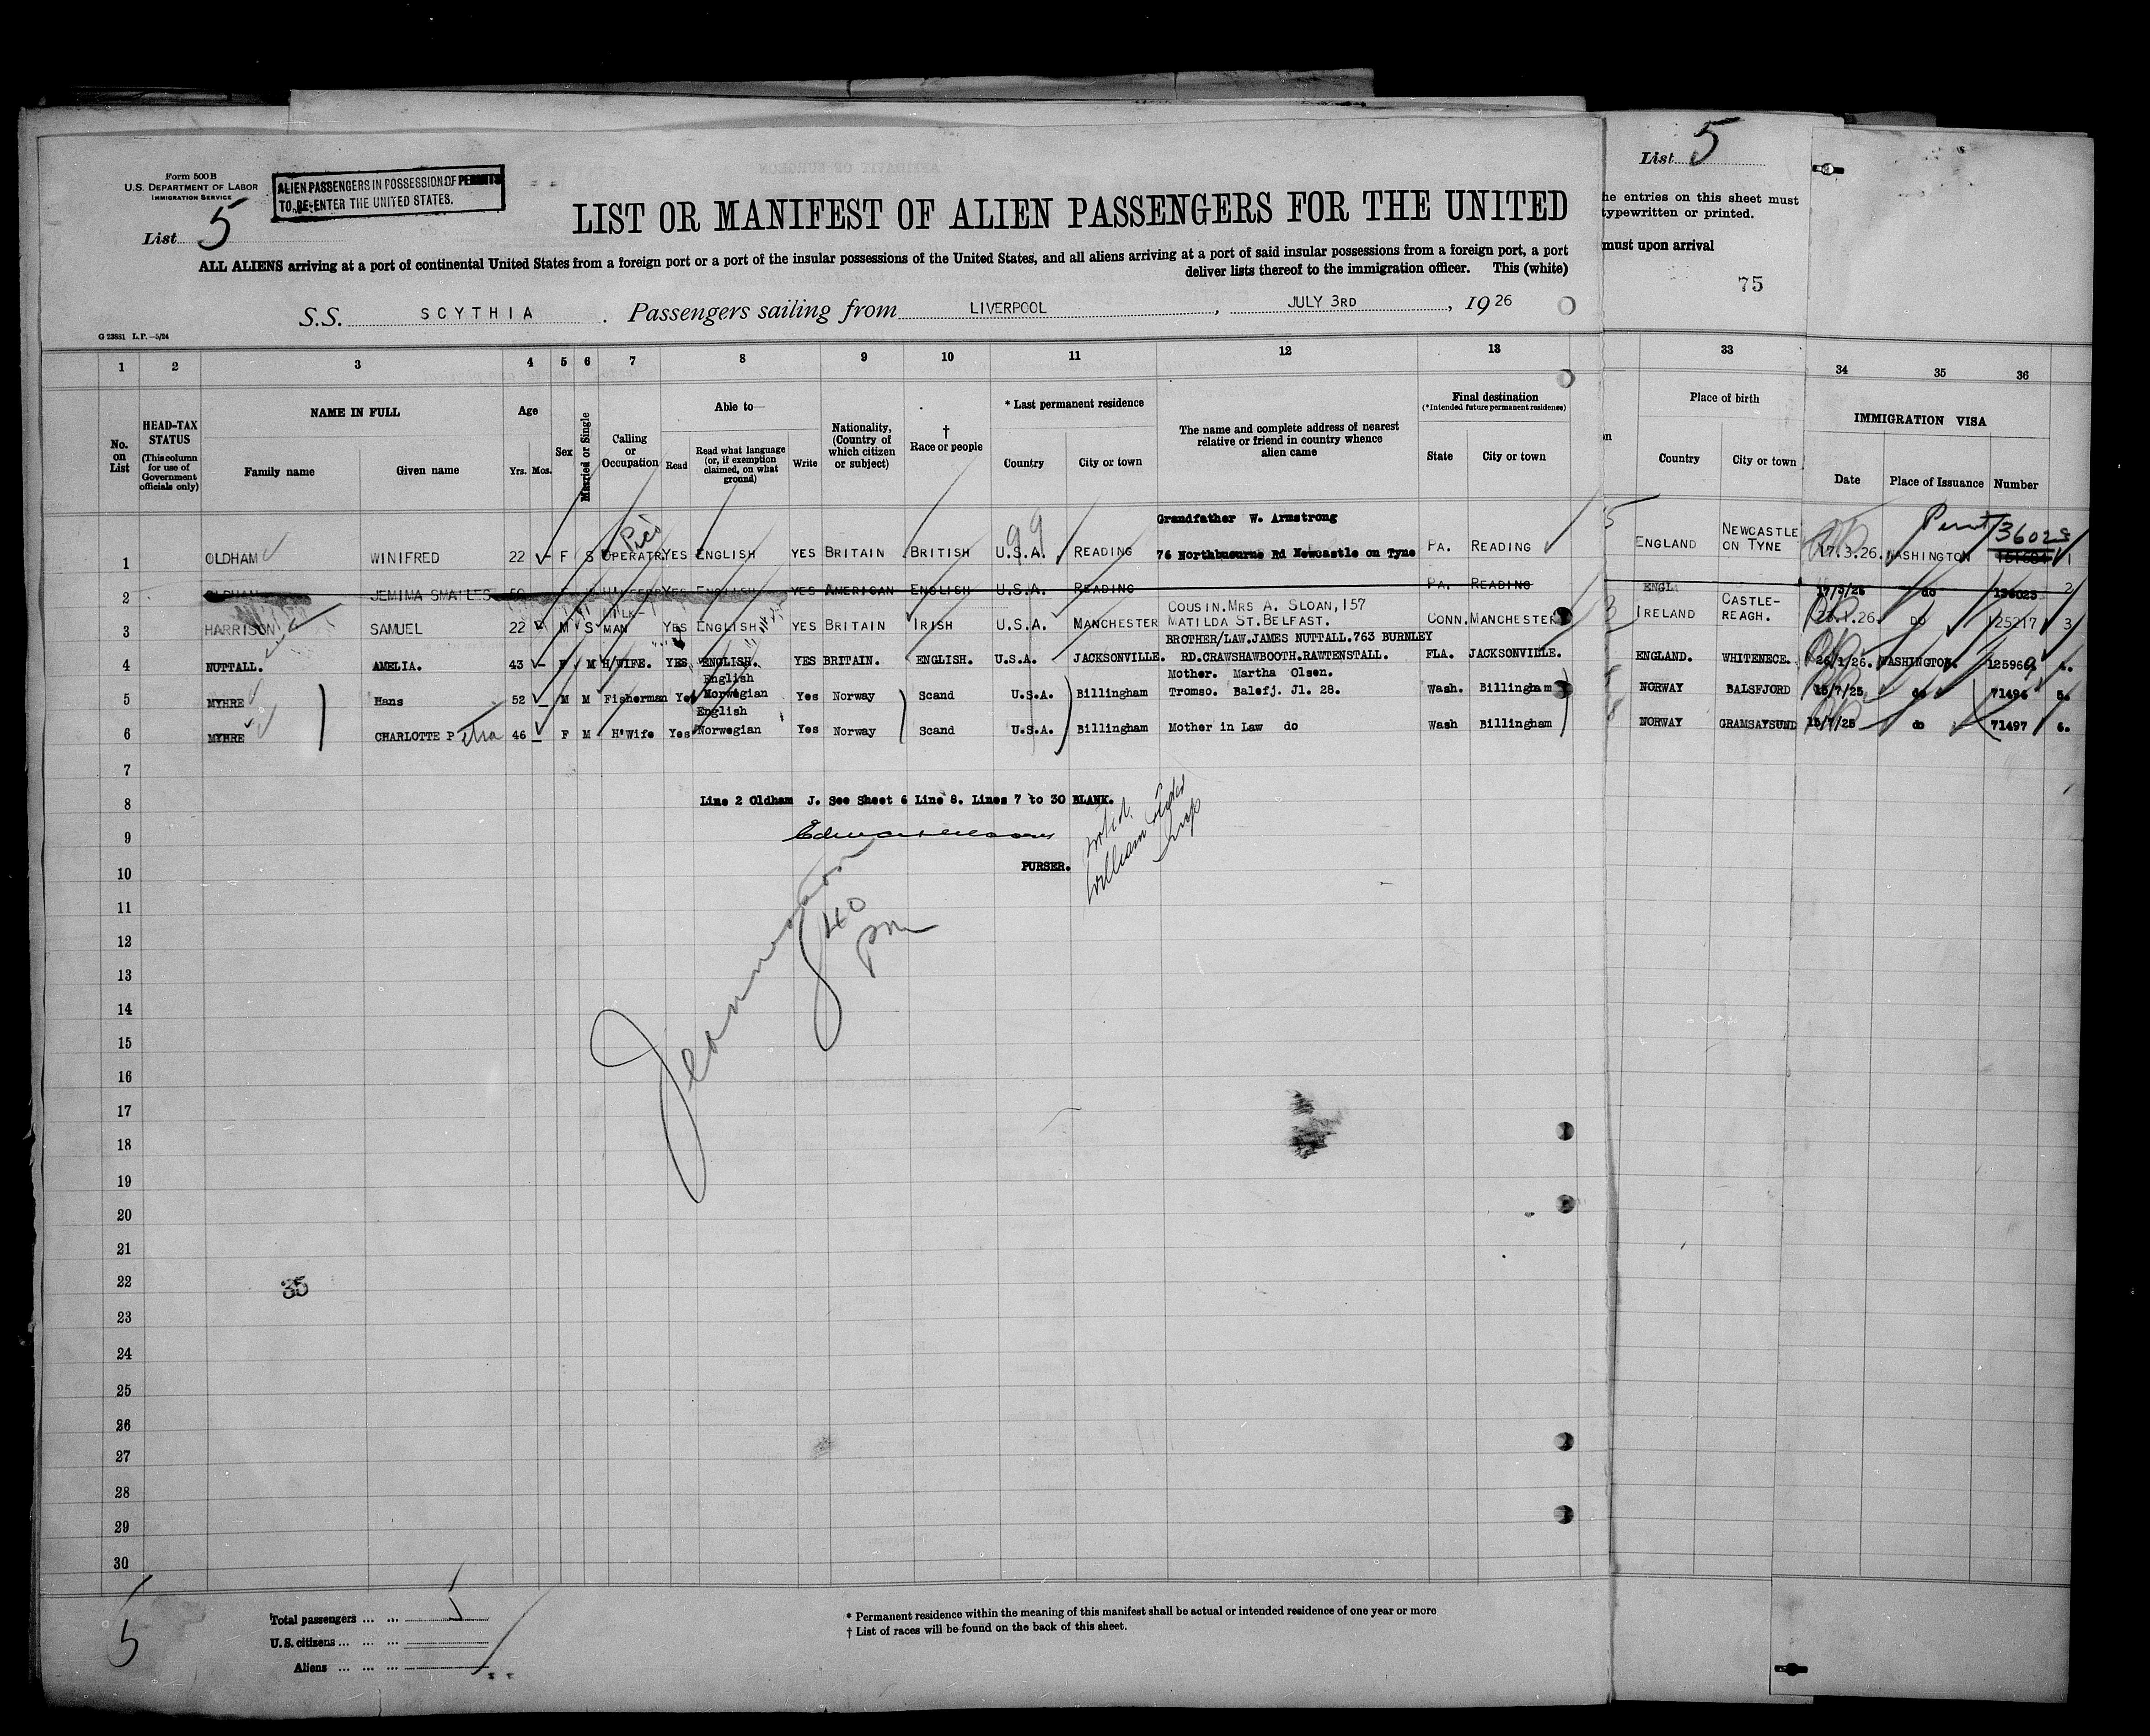 Form 500 B
U.S. DEPARTMENT OF LABOR
IMMIGRATION SERVICE
ALIEN PASSENGERS IN POSSESSION OF PERMITS
TO RE-ENTER THE UNITED STATES.
List 5
LIST OR MANIFEST OF ALIEN PASSENGERS FOR THE UNITED
ALL ALIENS arriving at a port of continental United States from a foreign port or a port of the insular possessions of the United States, and all aliens arriving at a port of said insular possessions from a foreign port, a port
deliver lists thereof to the immigration officer. This (white)
S.S. SCYTHIA . Passengers sailing from LIVERPOOL , JULY 3RD , 19 26
G 23881 L.P.—5/24
List 5
he entries on this sheet must
typewritten or printed.
must upon arrival
75
1 2 3 4 5 6 7 8 9 10 11 12 13 33 34 35 36
No. on List
HEAD-TAX STATUS (This column for use of Government officials only)
NAME IN FULL
Family name Given name
Age
Yrs. Mos.
Sex
Married or Single
Calling or Occupation
Able to—
Read Read what language (or, if exemption claimed, on what ground) Write
Nationality, (Country of which citizen or subject)
† Race or people
* Last permanent residence
Country City or town
The name and complete address of nearest relative or friend in country whence alien came
Final destination
(*Intended future permanent residence)
State City or town
Place of birth
Country City or town
IMMIGRATION VISA
Date Place of Issuance Number
Grandfather W. Armstrong
1 OLDHAM WINIFRED 22 F S OPERATR YES ENGLISH YES BRITAIN BRITISH U.S.A. READING 76 Northbourne Rd Newcastle on Tyne PA. READING ENGLAND NEWCASTLE ON TYNE 17.3.26. WASHINGTON Permit 1
99
2 OLDHAM JEMIMA SMAILES YES ENGLISH YES AMERICAN ENGLISH U.S.A. READING PA. READING ENGL 17/3/26 do 2
3 HARRISON SAMUEL 22 M S MILK-MAN YES ENGLISH YES BRITAIN IRISH U.S.A. MANCHESTER COUSIN.MRS A. SLOAN,157 MATILDA ST.BELFAST. CONN. MANCHESTER IRELAND CASTLE-REAGH. DO 125217 3
4 NUTTALL. AMELIA. 43 F M H/WIFE. YES ENGLISH. YES BRITAIN. ENGLISH. U.S.A. JACKSONVILLE. BROTHER/LAW.JAMES NUTTALL.763 BURNLEY RD.CRAWSHAWBOOTH.RAWTENSTALL. FLA. JACKSONVILLE. ENGLAND. WHITENECE. 26/1/26. WASHINGTON. 125969 4.
5 MYHRE Hans 52 M M Fisherman Yes English Norwegian Yes Norway Scand U.S.A. Billingham Mother. Martha Olsen. Tromso. Balsfj. Jl. 28. Wash. Billingham NORWAY BALSFJORD 15/7/25 do 71496 5.
6 MYHRE CHARLOTTE Petra 46 F M H'Wife Yes English Norwegian Yes Norway Scand U.S.A. Billingham Mother in Law do Wash Billingham NORWAY GRAMSAYSUND 15/7/25 do 71497 6.
7
8 Line 2 Oldham J. See Sheet 6 Line 8. Lines 7 to 30 BLANK.
9
10 PURSER.
840 pm
11
12
13
14
15
16
17
18
19
20
21
22 35
23
24
25
26
27
28
29
30
5
Total passengers ... ... 5
U.S. citizens ... ... ...
Aliens ... ... ...
* Permanent residence within the meaning of this manifest shall be actual or intended residence of one year or more
† List of races will be found on the back of this sheet.